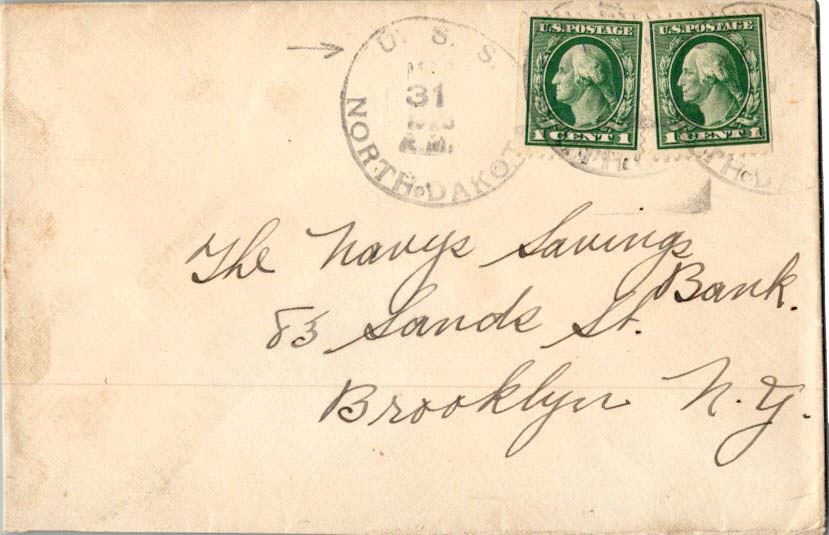 U. S. S.
31
A.M.
NORTH DAKOTA
U.S. POSTAGE
1 CENT 1
U.S. POSTAGE
1 CENT 1
The Navys Savings
Bank.
83 Sands St.
Brooklyn N.Y.